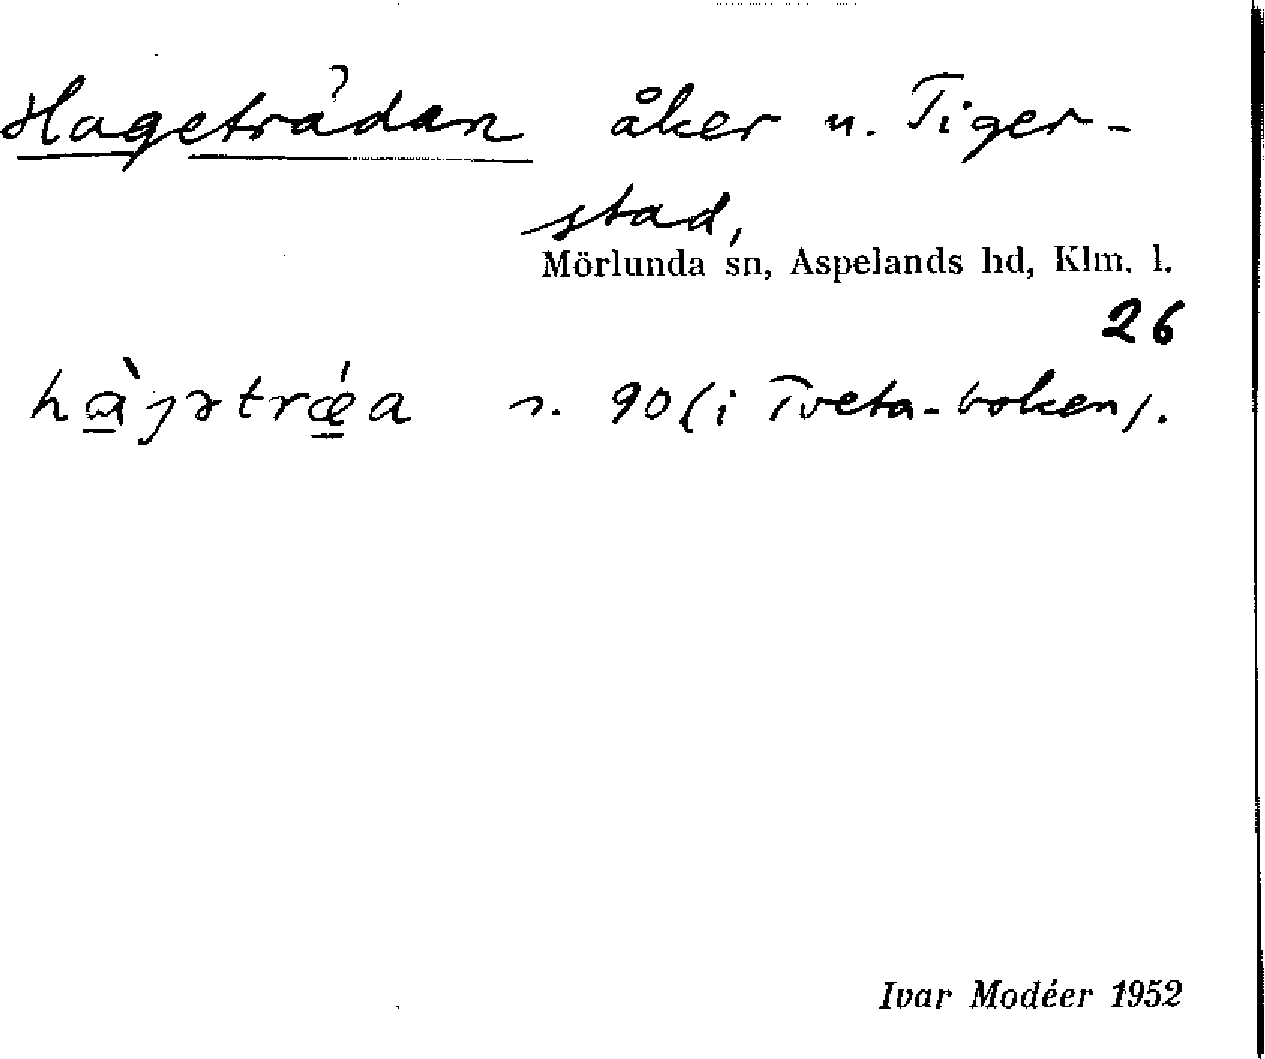 Hageträdan åker u. Tiger-
stad,
Mörlunda sn, Aspelands hd, Klm. l.
26
hɑ̀gətrǽa s. 90 (i Tveta-boken).
Ivar Modéer 1952